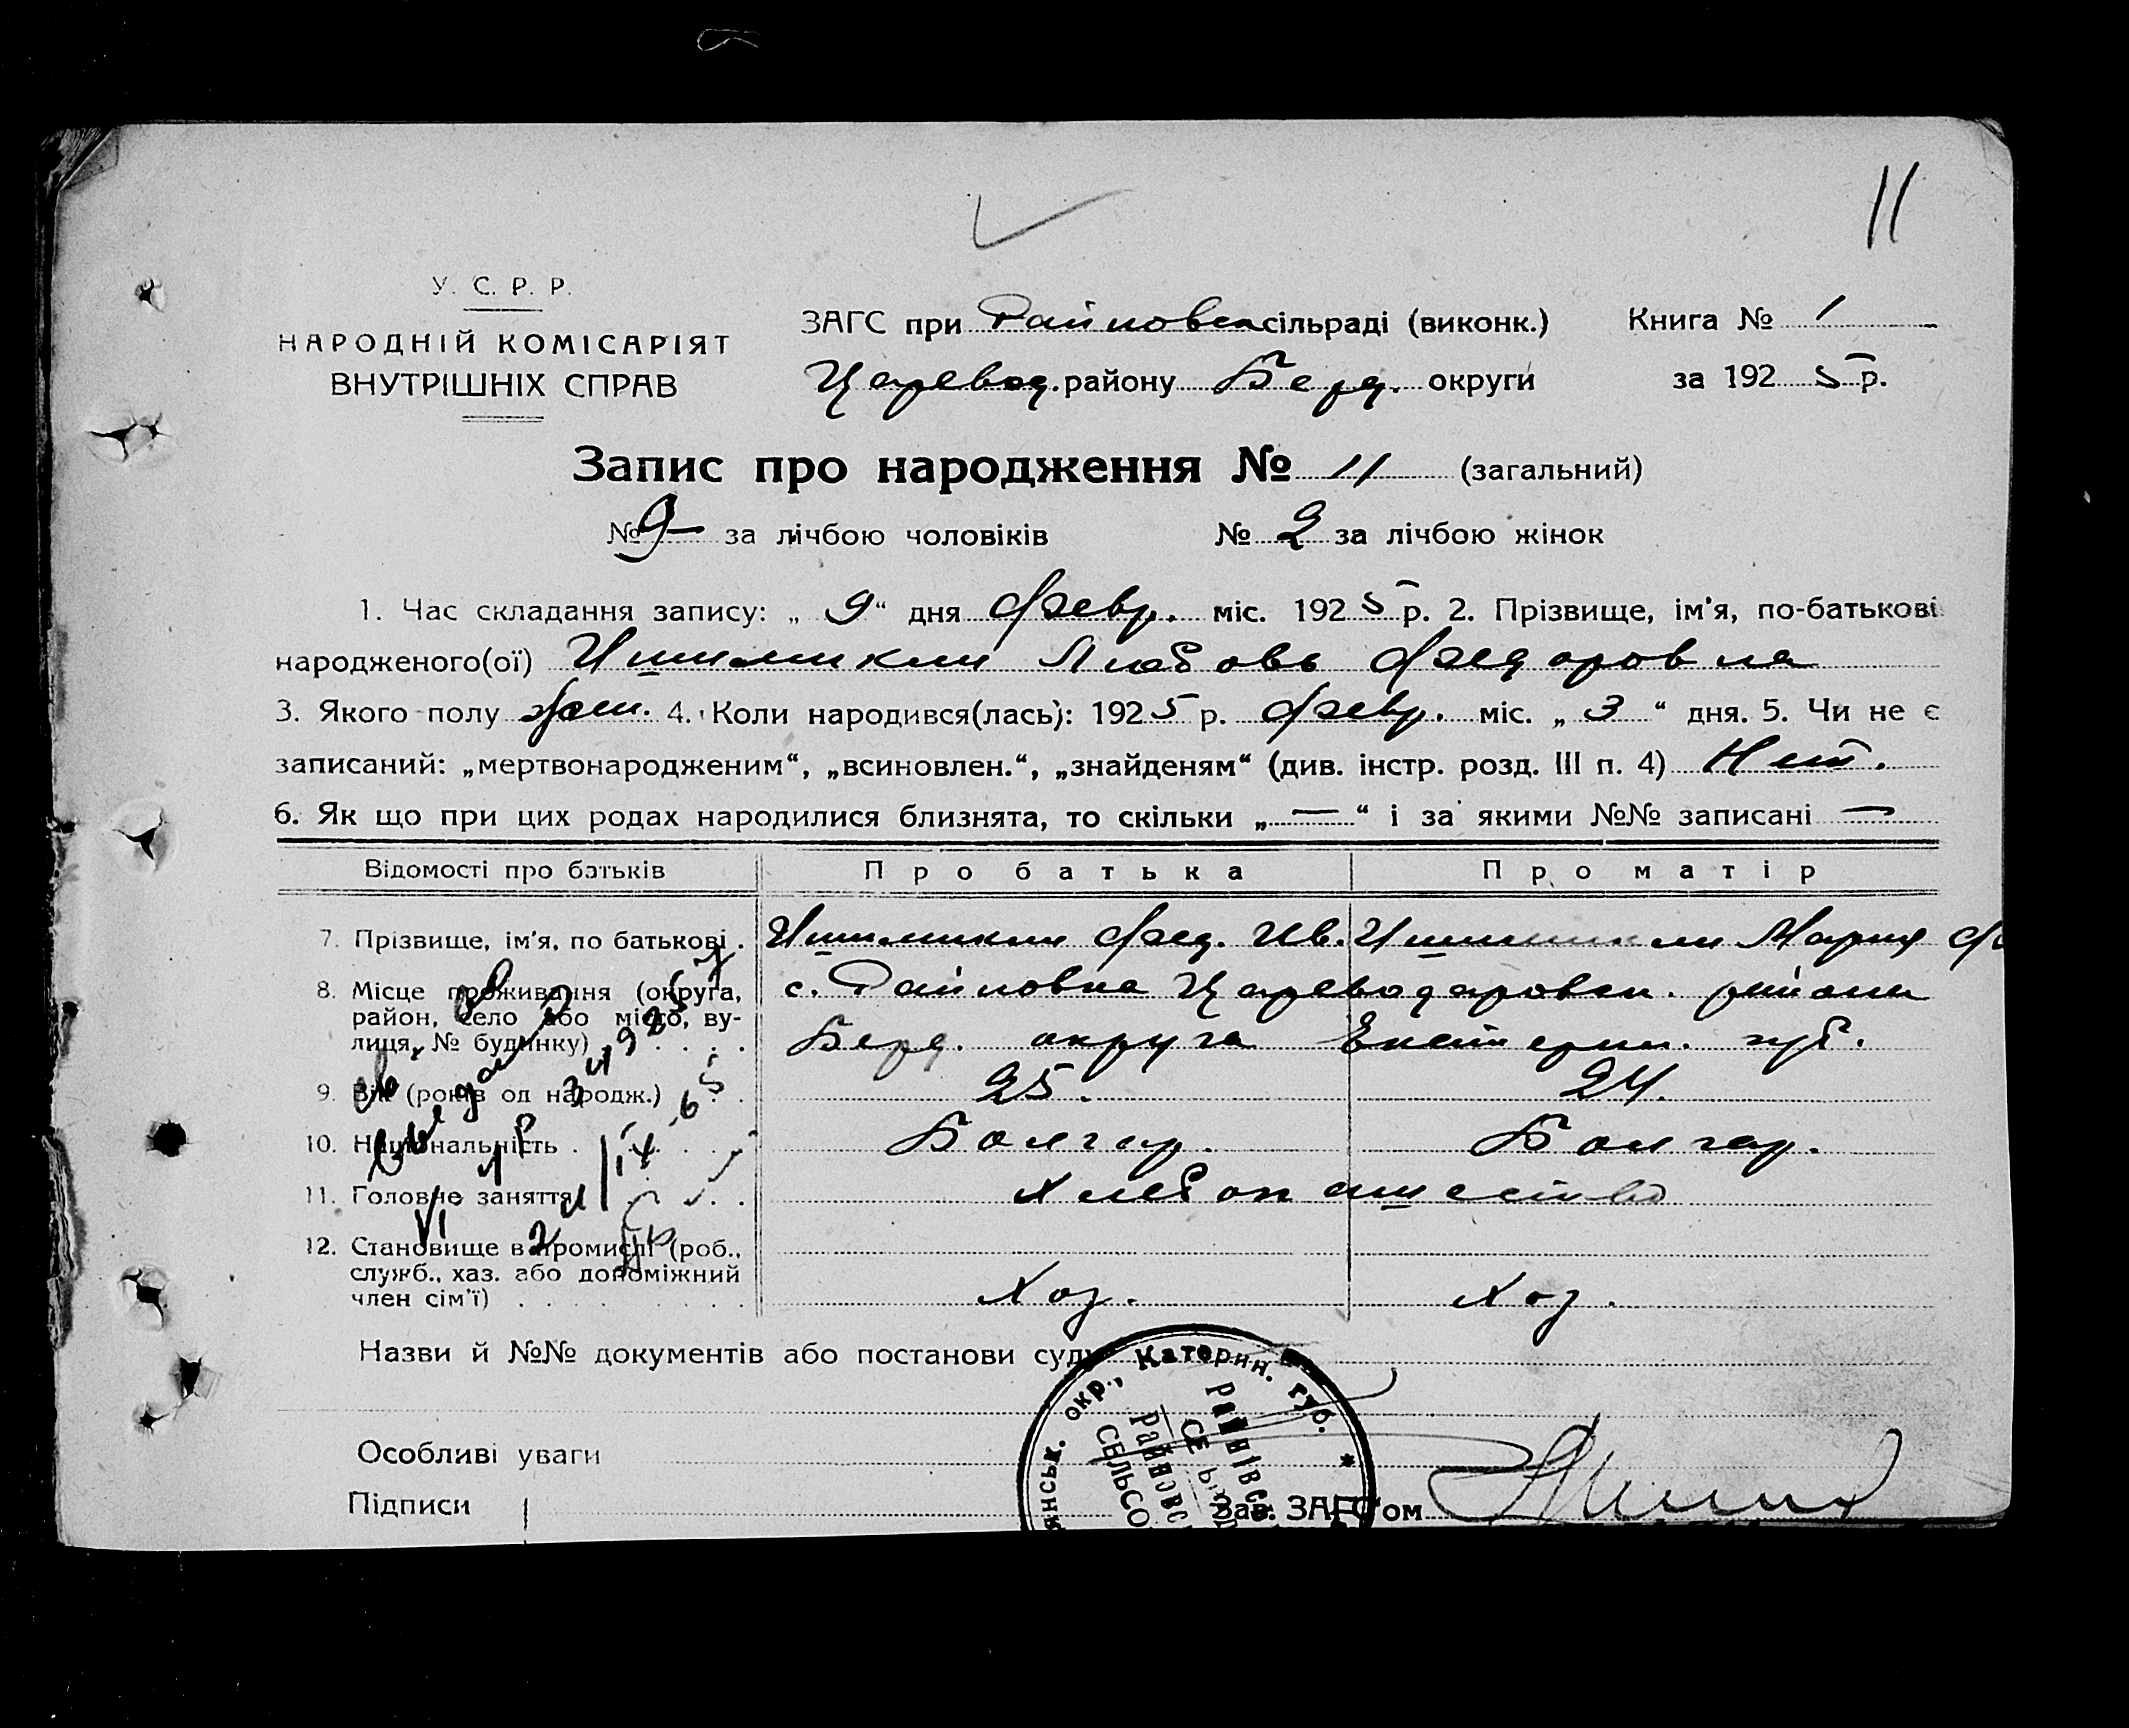 11
У. С. Р. Р.
НАРОДНІЙ КОМІСАРІЯТ
ВНУТРІШНІХ СПРАВ
ЗАГС при Райновск сільраді (виконк.) Книга № 1
Царевод. району Берд. округи за 1925 р.
Запис про народження № 11 (загальний)
№ 9 за лічбою чоловіків № 2 за лічбою жінок
1. Час складання запису: „ 9 “ дня Февр. міс. 1925 р. 2. Прізвище, ім'я, по-батькові
народженого(ої) Любовь Федоровна
3. Якого полу жен. 4. Коли народився(лась): 1925 р. Февр. міс. „ 3 “ дня. 5. Чи не є
записаний: „мертвонародженим“, „всиновлен.“, „знайденям“ (див. інстр. розд. III п. 4) Нет.
6. Як що при цих родах народилися близнята, то скільки „ — “ і за якими №№ записані —
Відомості про батьків Про батька Про матір
7. Прізвище, ім'я, по батькові . Фед. Ив. Мария
8. Місце проживання (округа, с. Райновка Цареводаровск. района
район, село або місто, ву-
лиця, № будинку) . . . . Берд. округа Екатерин. губ.
9. Вік (років од народж.) . . 25. 24.
10. Національність . . . . . Болгар. Болгар.
11. Головне заняття . . . . Хлебопашество
12. Становище в промислі (роб.,
служб., хаз. або допоміжний
член сім'ї) . . . . . . . . Хоз. Хоз.
Назви й №№ документів або постанови суду
окр., Катерин. губ. *
Особливі уваги
Підписи Зав. ЗАГС'ом